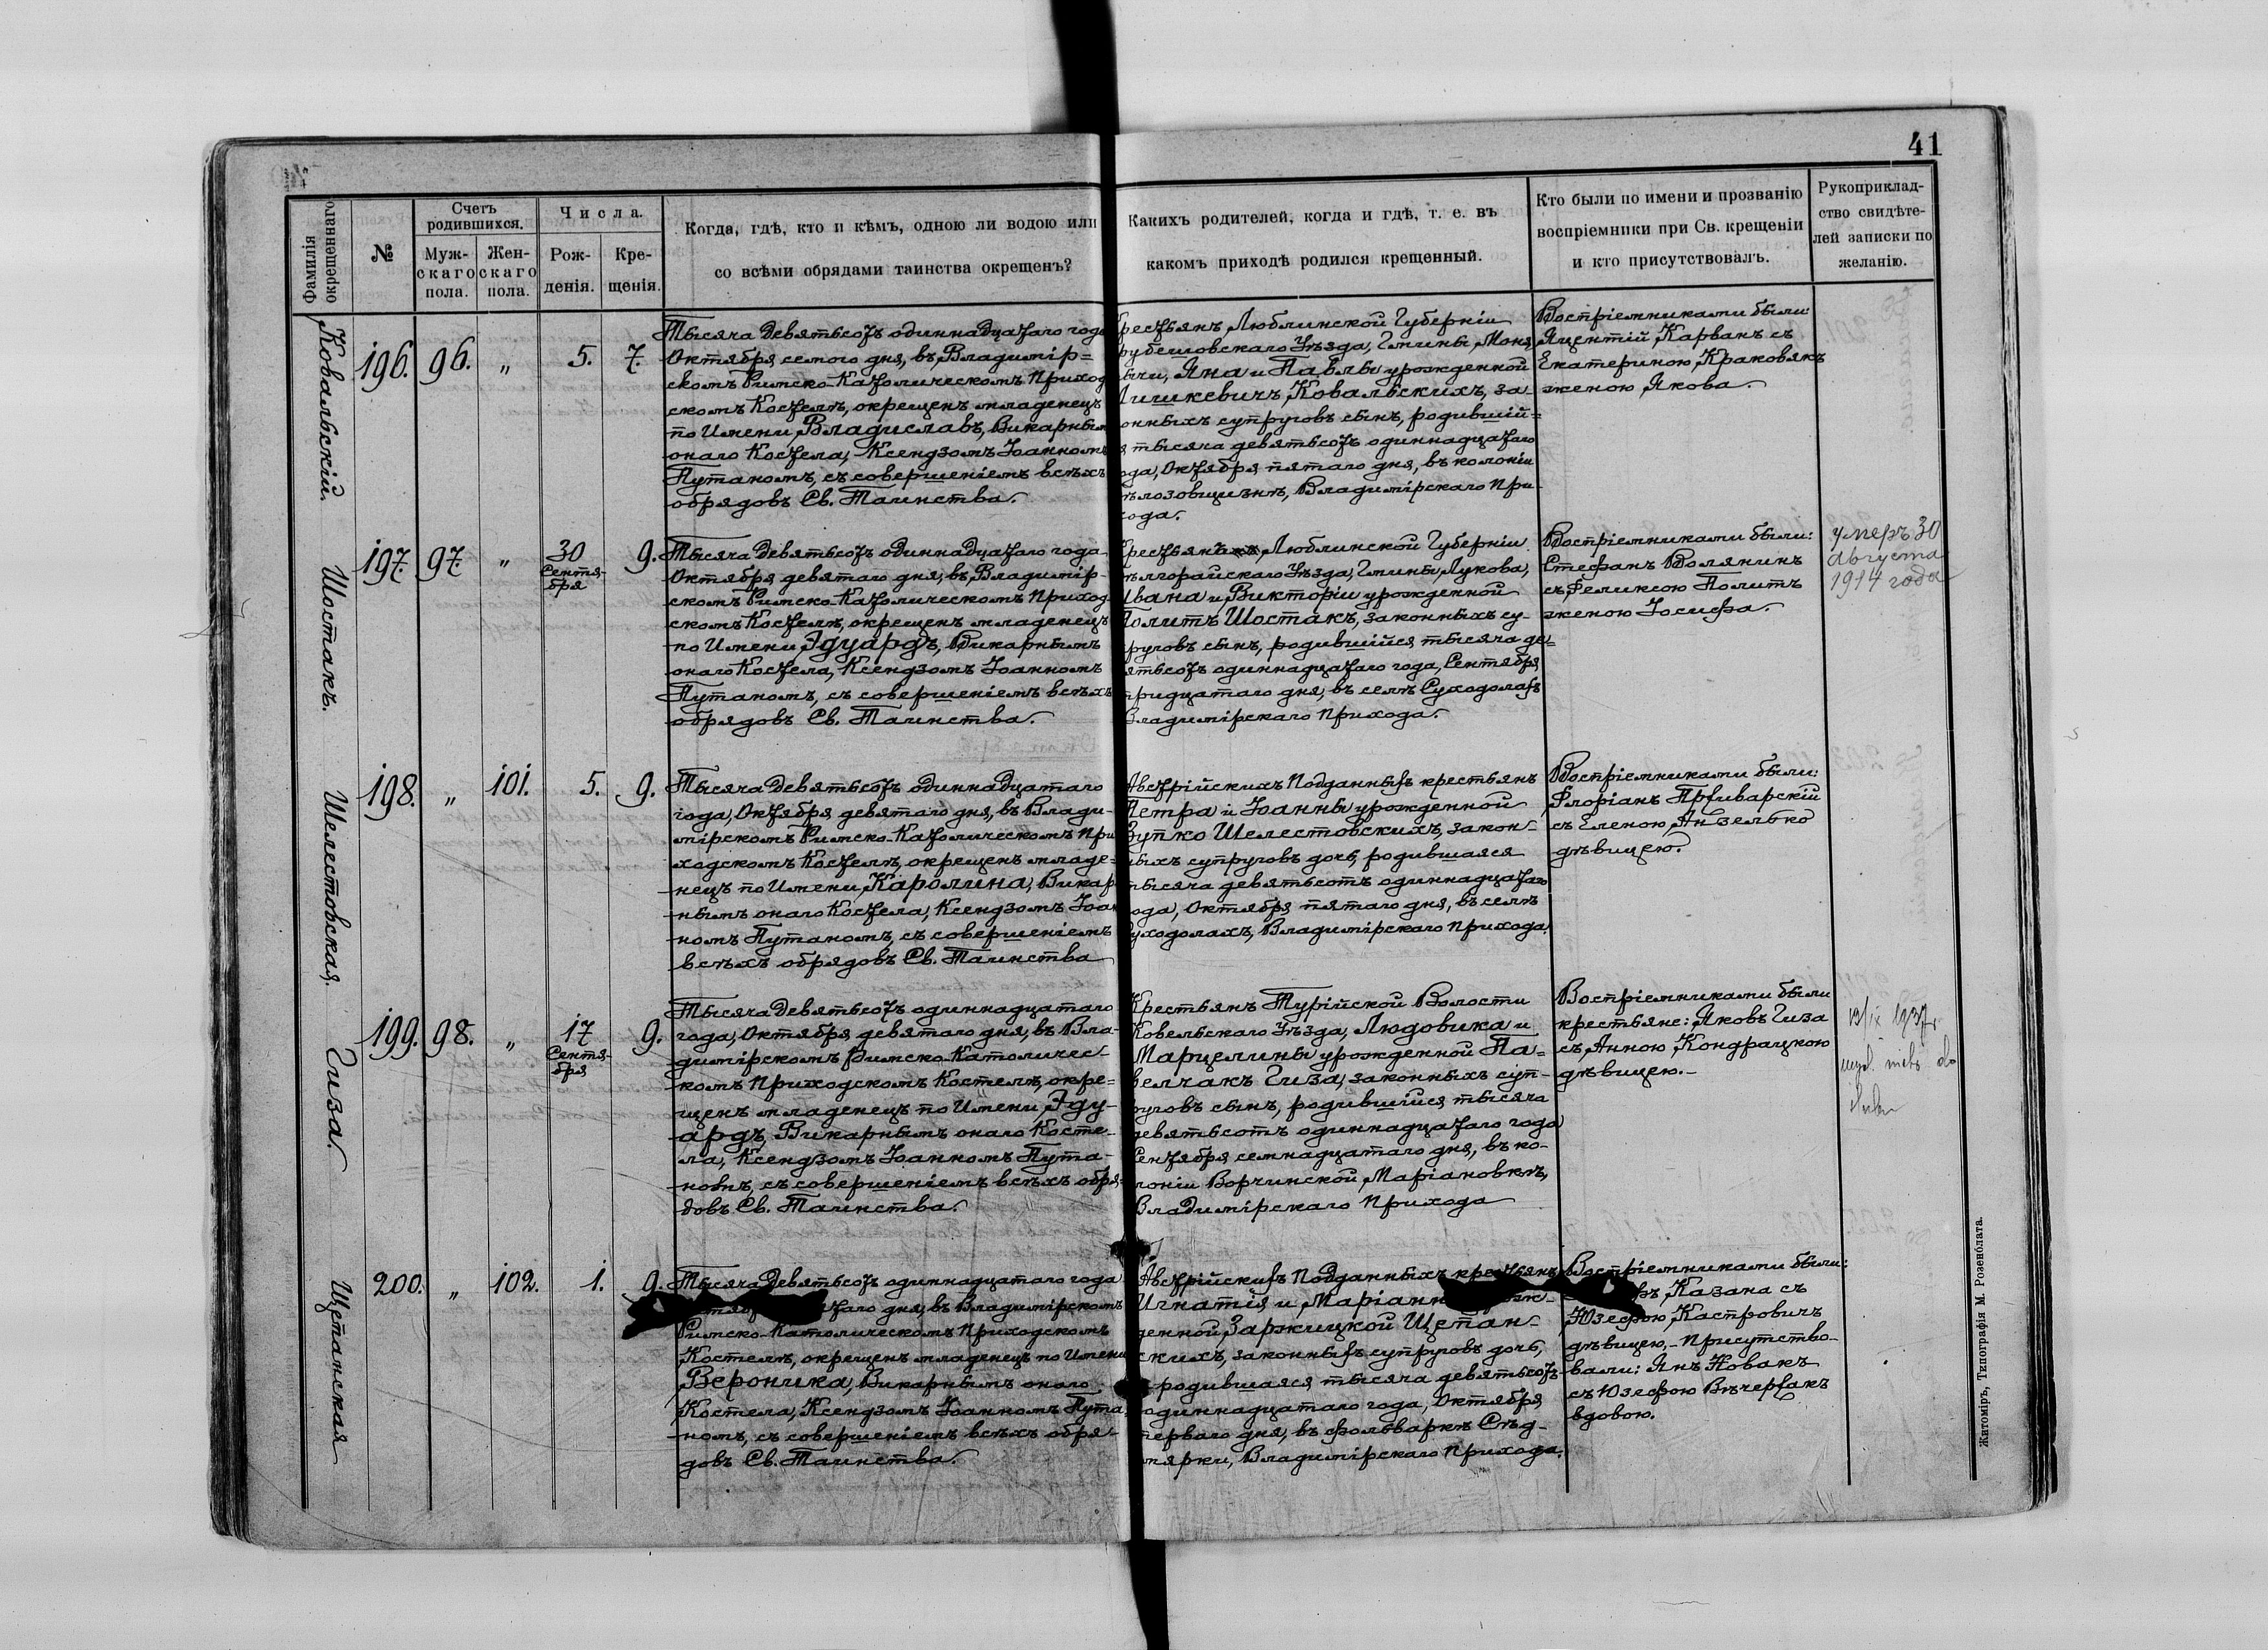 41
Фамилія окрещеннаго
№
Счетъ родившихся.
Муж-
скаго
пола.
Жен-
скаго
пола.
Числа.
Рож-
денія.
Кре-
щенія.
Когда, гдѣ, кто и кѣмъ, одною ли водою или
со всѣми обрядами таинства окрещенъ?
Какихъ родителей, когда и гдѣ, т. е. въ
какомъ приходѣ родился крещенный.
Кто были по имени и прозванію
воспріемники при Св. крещеніи
и кто присутствовалъ.
Рукоприклад-
ство свидѣте-
лей записки по
желанію.
Ковальскій.
196. 96. „ 5. 7.
Тысяча девятьсотъ одиннадцатаго года
Октября семого дня, въ Владимір=
скомъ Римско-Католическомъ Приход
скомъ Костелѣ, окрещенъ младенецъ
по Имени Владиславъ, Викарнымъ
онаго Костела, Ксендзомъ Іоанномъ
Путаномъ, съ совершеніемъ всѣхъ
обрядовъ Св. Таинства.
крестьянъ Люблинской Губерніи
рубешовскаго Уѣзда, Гмины Моня
ычи, Яна и Павлы урожденной
Лишкевичъ, Ковальскихъ, за-
онныхъ супруговъ сынъ, родившій=
я тысяча девятьсотъ одиннадцатаго
ода, Октября пятаго дня, въ колоніи
ѣлозовщизнѣ, Владимірскаго При-
хода.
Воспріемниками были:
Яцентій Карванъ съ
Екатериною Краковякъ
женою Якова.
Шостакъ.
197. 97. „ 30 Сентя-бря 9.
Тысяча девятьсотъ одиннадцатаго года
Октября девятаго дня, въ Владимір-
скомъ Римско-Католическомъ Приход
скомъ Костелѣ, окрещенъ младенецъ
по Имени Эдуардъ, Викарнымъ
онаго Костела, Ксендзомъ Іоанномъ
Путаномъ, съ совершеніемъ всѣхъ
обрядовъ Св. Таинства.
Крестьянъ Люблинской Губерніи
ѣлгорайскаго Уѣзда, Гмины Лукова,
Ивана и Викторіи урожденной
Политъ Шостакъ, законныхъ су-
пруговъ сынъ, родившійся тысяча де-
вятьсотъ одиннадцатаго года, Сентября
тридцатаго дня, въ селѣ Суходолахъ
Владимірскаго Прихода.
Воспріемниками были:
Стефанъ Волянинъ
съ Феликсою Политъ
женою Іосифа.
умеръ 30
августа
1914 года
Шелестовская.
198. „ 101. 5. 9.
Тысяча девятьсотъ одиннадцатаго
года, Октября девятаго дня, въ Влади-
мірскомъ Римско-Католическомъ При
ходскомъ Костелѣ, окрещенъ младе=
нецъ по Имени Каролина, Викар
нымъ онаго Костела, Ксендзомъ Іоан
номъ Путаномъ, съ совершеніемъ
всѣхъ обрядовъ Св. Таинства
Австрійскихъ Подданныхъ крестьянъ
Петра и Іоанны урожденной
Зупко Шелестовскихъ, закон-
ныхъ супруговъ дочь, родившаяся
тысяча девятьсотъ одиннадцатаго
ода, Октября пятаго дня, въ селѣ
Суходолахъ, Владимірскаго Прихода.
Воспріемниками были:
Флоріанъ
съ Еленою Анзелько
дѣвицею.
Гиза.
199. 98. „ 17 Сентя-бря 9.
Тысяча девятьсотъ одиннадцатаго
года, Октября девятаго дня, въ Вла-
димірскомъ Римско-Католичес-
комъ Приходскомъ Костелѣ, окре=
щенъ младенецъ по Имени Эду-
ардъ, Викарнымъ онаго Косте-
ла, Ксендзомъ Іоанномъ Пута-
номъ, съ совершеніемъ всѣхъ обря-
довъ Св. Таинства.
Крестьянъ Турійской Волости
Ковельскаго Уѣзда, Людовика и
Марцелины урожденной Па=
велчакъ Гиза, законныхъ суп-
руговъ сынъ, родившійся тысяча
девятьсотъ одиннадцатаго года
Сентября семнадцатаго дня, въ ко-
лоніи Ворчинской Маріановкѣ,
Владимірскаго Прихода
Воспріемниками были
крестьяне: Яковъ Гиза
съ Анною Кондрацкою
дѣвицею.-
13/IX 1937 r.
Щепанская
200. „ 102. 1. 9.
Тысяча девятьсотъ одиннадцатаго года
дня, въ Владимірскомъ
Римско-Католическомъ Приходскомъ
Костелѣ, окрещенъ младенецъ по Имени
Вероника, Викарнымъ онаго
Костела, Ксендзомъ Іоанномъ Пута,
номъ, съ совершеніемъ всѣхъ обря-
довъ Св. Таинства.
Австрійскихъ Подданныхъ крестьянъ
Игнатія и Маріанны
денной Заржицкой Щепан-
скихъ, законныхъ супруговъ дочь,
родившаяся тысяча девятьсотъ
одиннадцатаго года, Октября
перваго дня, въ фольваркѣ Сѣд-
мярки, Владимірскаго Прихода.
Воспріемниками были:
Казана съ
Юзефою Кастровичъ
дѣвицею,- Присутство-
вали: Янъ Новакъ
съ Юзефою Вѣчерзакъ
вдовою.
Житоміръ, Типографія М. Розенблата.